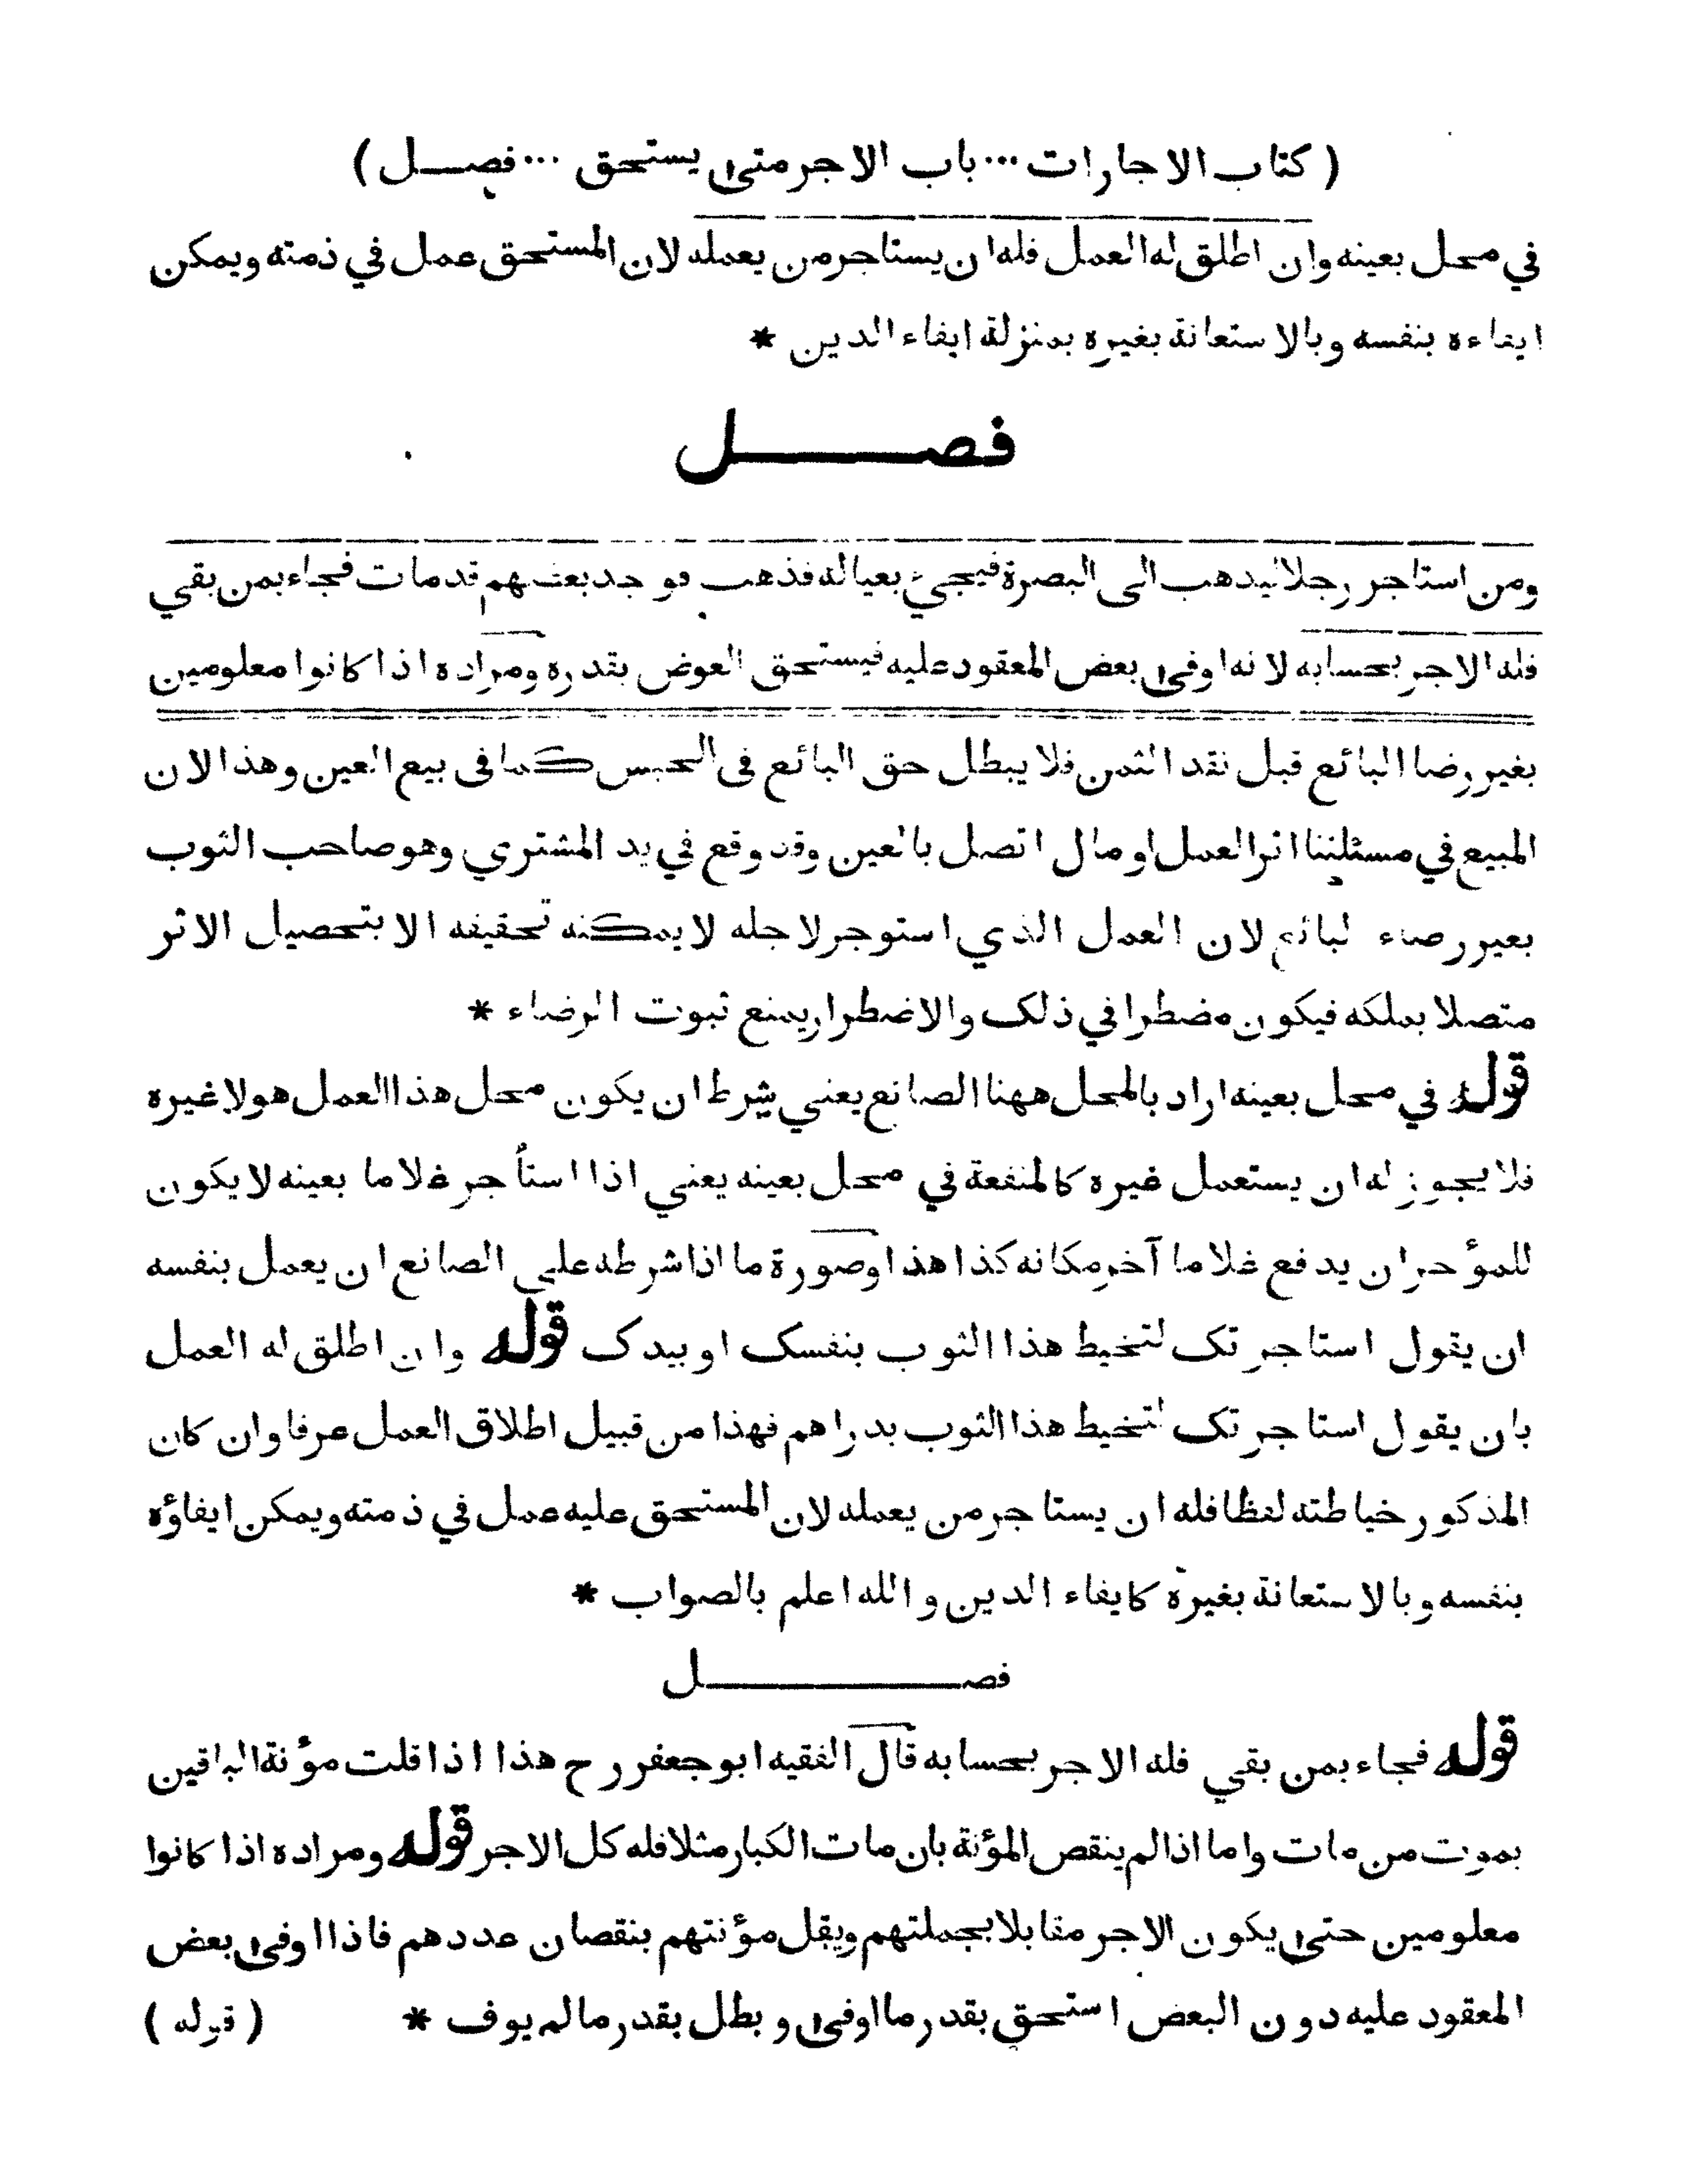 ( كتاب الاجارات ... باب الاجر متى يستحق ... فصل )
في محل بعينه وان اطلق له العمل فله ان يستاجر من يعمله لان المستحق عمل في ذمته ويمكن
ايفاءه بنفسه وبالاستعانة بغيره بمنزلة ايفاء الدين *
فصل
ومن استاجر رجلا ليذهب الى البصرة فيجيء بعياله فذهب فوجد بعضهم قد مات فجاء بمن بقي
فله الاجر بحسابه لانه اوفى بعض المعقود عليه فيستحق العوض بقدره ومراده اذا كانوا معلومين
بغير رضا البائع قبل نقد الثمن فلا يبطل حق البائع فى الحبس كما فى بيع العين وهذا لان
المبيع في مسئلتنا اثر العمل او مال اتصل بالعين وقد وقع في يد المشتري وهو صاحب الثوب
بغير رضاء البائع لان العمل الذي استوجر لاجله لا يمكنه تحقيقه الا بتحصيل الاثر
متصلا بملكه فيكون مضطرا في ذلک والاضطرار يمنع ثبوت الرضاء *
قوله في محل بعينه اراد بالمحل ههنا الصانع يعني شرط ان يكون محل هذا العمل هو لا غيره
فلا يجوز له ان يستعمل غيره كالمنفعة في محل بعينه يعني اذا استأجر غلاما بعينه لا يكون
للمؤجر ان يدفع غلاما آخر مكانه كذا هذا وصورة ما اذا شرطه على الصانع ان يعمل بنفسه
ان يقول استاجرتک لتخيط هذا الثوب بنفسک او بيدک قوله وان اطلق له العمل
بان يقول استاجرتک لتخيط هذا الثوب بدراهم فهذا من قبيل اطلاق العمل عرفا وان كان
المذكور خياطته لفظا فله ان يستاجر من يعمله لان المستحق عليه عمل في ذمته ويمكن ايفاؤه
بنفسه وبالاستعانة بغيره كايفاء الدين والله اعلم بالصواب *
فصل
قوله فجاء بمن بقي فله الاجر بحسابه قال الفقيه ابو جعفر رح هذا اذا قلت مؤنة الباقين
بموت من مات واما اذا لم ينقص المؤنة بان مات الكبار مثلا فله كل الاجر قوله ومراده اذا كانوا
معلومين حتى يكون الاجر مقابلا بجملتهم ويقل مؤنتهم بنقصان عددهم فاذا اوفى بعض
المعقود عليه دون البعض استحق بقدر ما اوفى و بطل بقدر ما لم يوف * ( قوله )